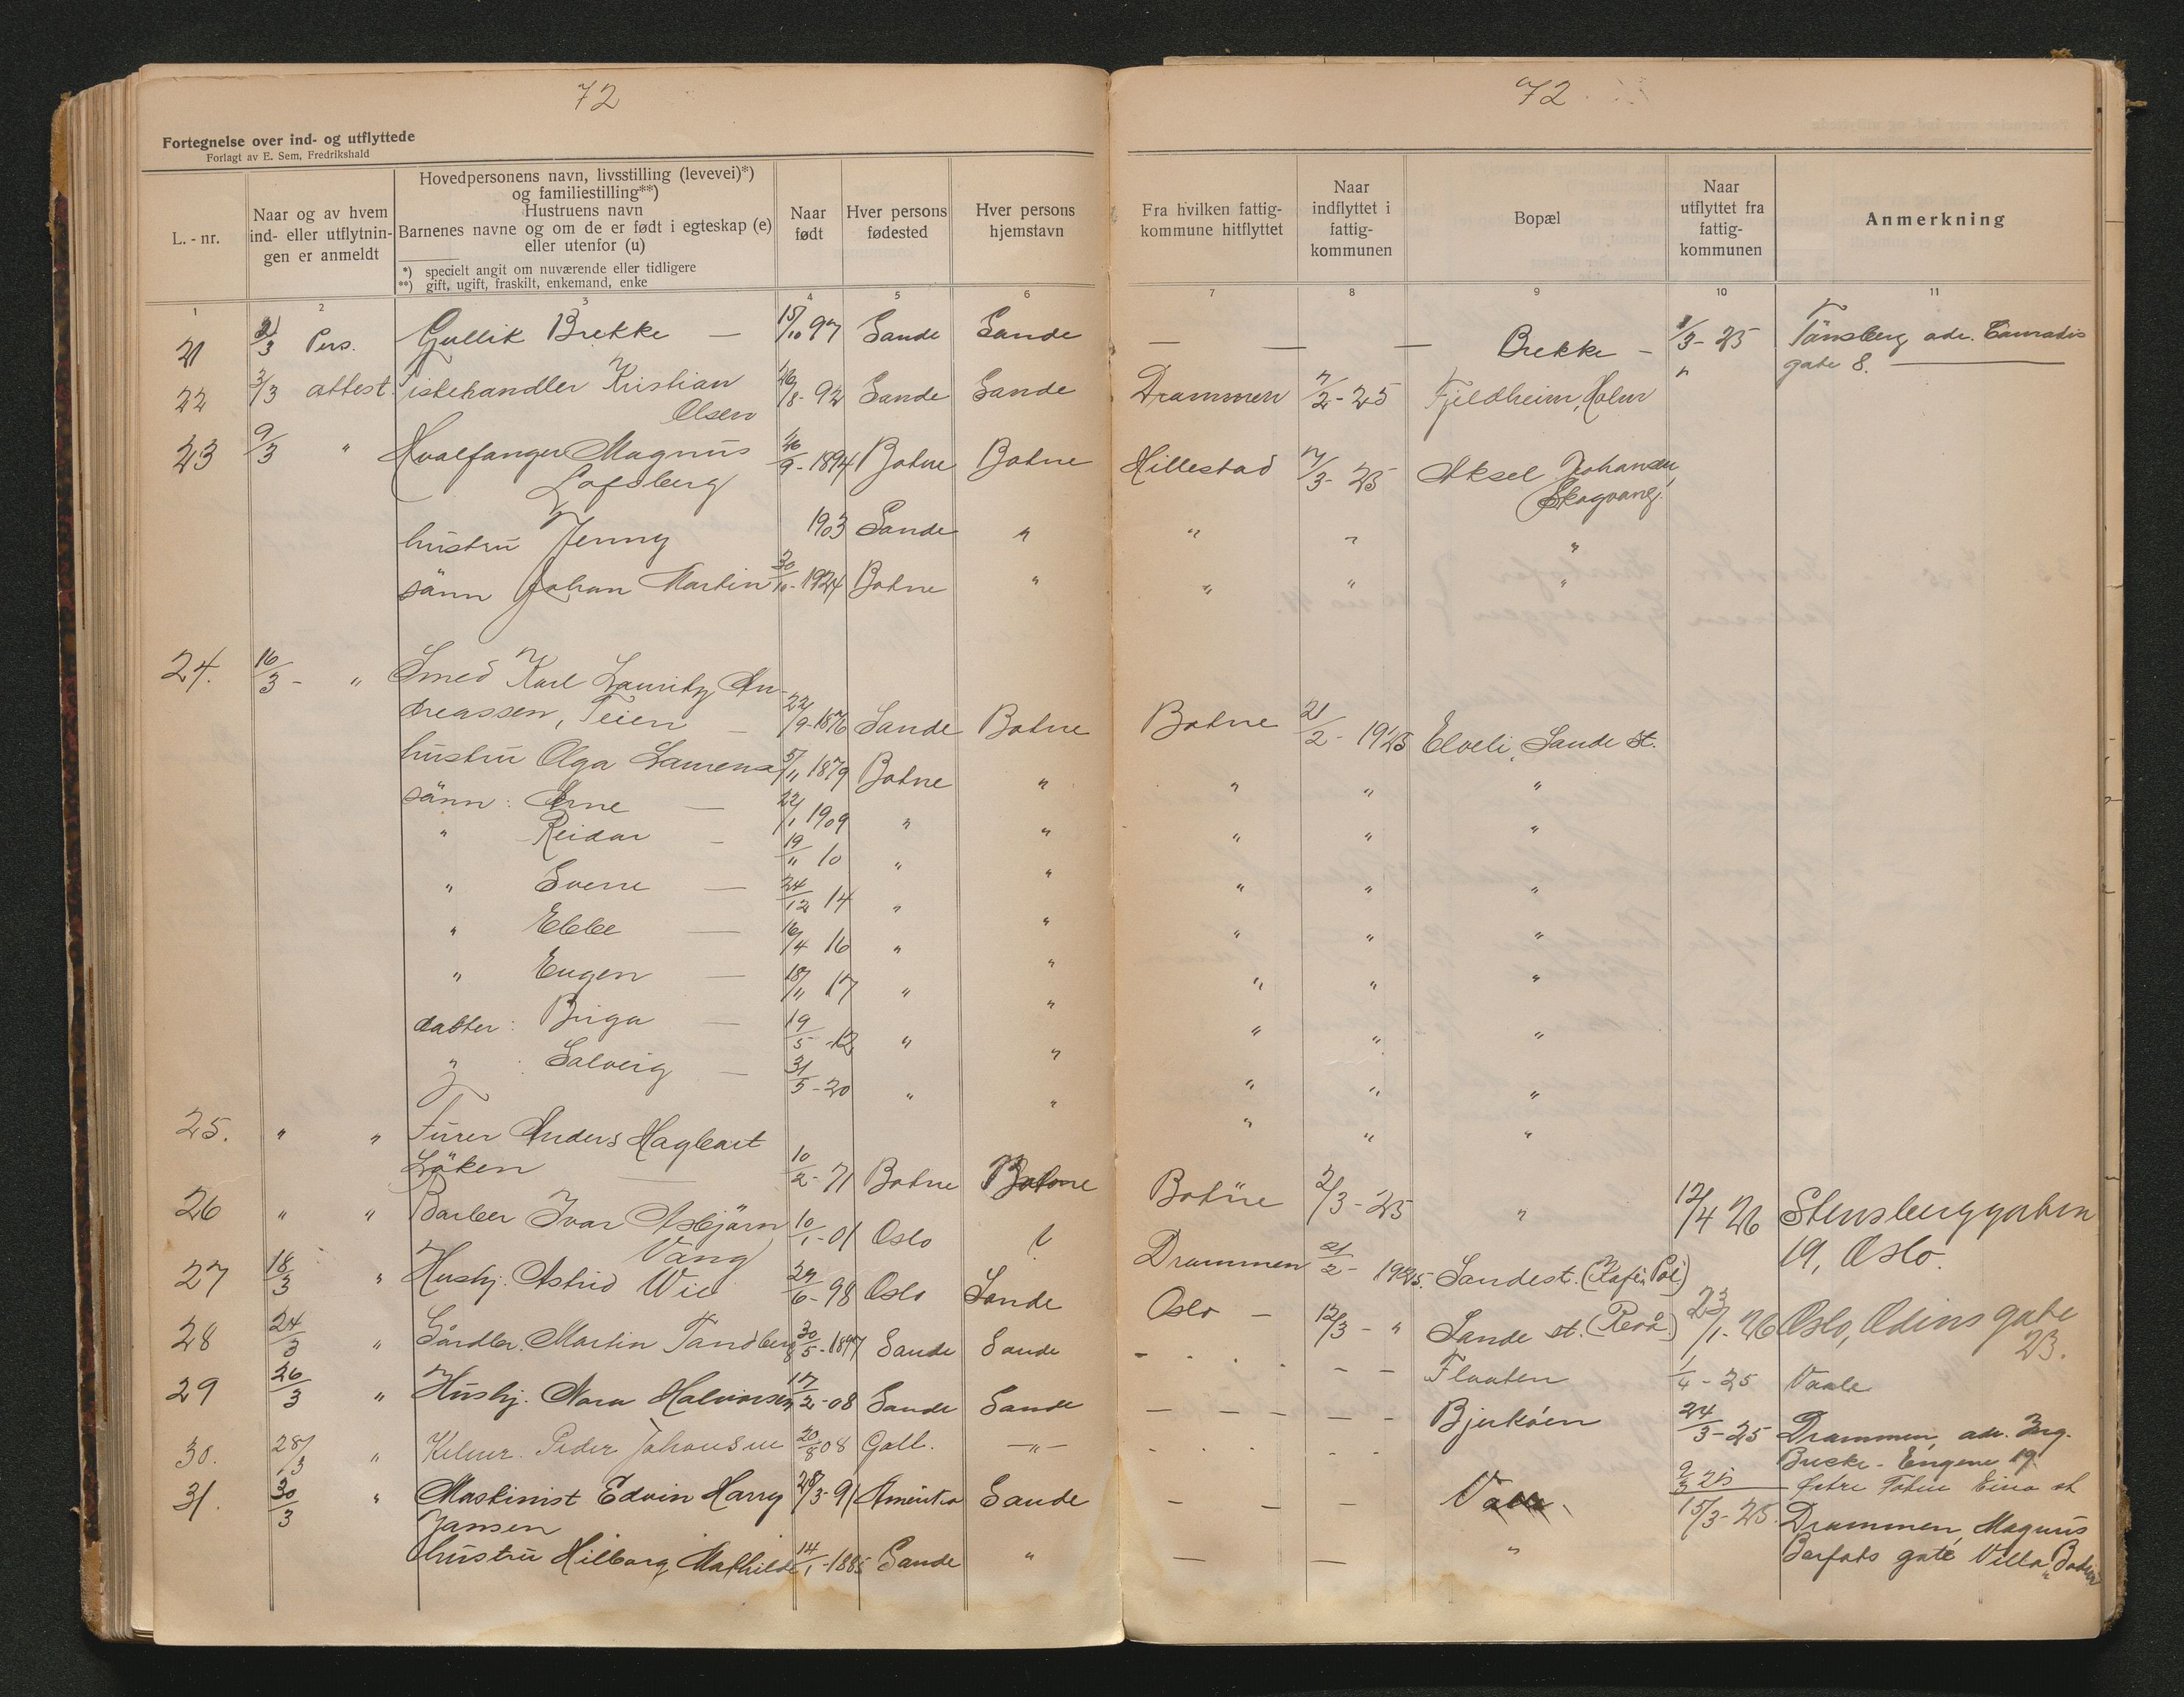 72
Fortegnelse over ind- og utflyttede
Forlagt av E. Sem, Fredrikshald
L. - nr.
Naar og av hvem
ind- eller utflytnin-
gen er anmeldt
Hovedpersonens navn, livsstilling (levevei)*)
og familiestilling**)
Hustruens navn
Barnenes navne og om de er født i egteskap (e)
eller utenfor (u)
*) specielt angit om nuværende eller tidligere
**) gift, ugift, fraskilt, enkemand, enke
Naar
født
Hver persons
fødested
Hver persons
hjemstavn
1 2 3 4 5 6
21 3/3 Pers. Gullik Brekke — 15/10 97 Sande Sande
22 3/3 attest. Fiskehandler Kristian 26/8- 92 Sande Sande
Olsen
23 9/3 " Hvalfanger Magnus 26/9- 1894 Botne Botne
Lofsberg
hustru Jenny 1903 Sande "
sönn Johan Martin 30/10- 1924 Botne "
24. 16/3 - " Smed Karl Lauritz An-
dreassen, Teien — 22/9-1876 Sande Botne
hustru Olga Laurena 5/11 1879 Botne "
sönn: Arne — 22/1 1909 " "
" Reidar — 19/11 10 " "
" Sverre — 24/12 14 " "
" Ebbe — 16/4 16 " "
" Eugen — 18/11 17 " "
datter: Birga — 19/5 -12 " "
" Solveig — 31/5 -20 " "
25. " " Furer Anders Hagbart
Löken — 10/2- 71 Botne Botne
26 " " Barber Ivar Asbjörn 10/1-01 Oslo ?
Vang
27 18/3 " Hushj. Astrid Wie 29/6-98 Oslo Sande
28 24/3 " Gårdbr. Martin Tandberg 30/5-1897 Sande Sande
29 26/3 " Hushj. Nora Halvorsen 17/2-08 Sande Sande
30. 28/3 " Kelner. Peder Johansen 20/8 08 Goll. — " —
31. 30/3 " Maskinist Edvin Harry 28/3-91 Amerika Sande
Jansen
hustru Hilborg Mathilde 14/1-1885 Sande "
72
Fra hvilken fattig-
kommune hitflyttet
Naar
indflyttet i
fattig-
kommunen
Bopæl
Naar
utflyttet fra
fattig-
kommunen
Anmerkning
7 8 9 10 11
— — — Brekke - 1/3- 25 Tönsberg adr. Conradis
gate 8. —
Drammen 7/2-25 Fjeldheim, Holm "
Hillestad 7/3- 25 Aksel Johansen,
Skogvang.
" " "
" " "
Botne 21/2- 1925 Elveli, Sande st.
" " "
" " "
" " "
" " "
" " "
" " "
" " "
" " "
Botne 2/3-25 " 12/4 26 Stensberggaten
19, Oslo.
Drammen 21/2- 1925. Sande st. (Kafé Pol)
Oslo — 12/3 - " Sande st. 23/1-26 Oslo, Odins gate
23.
- - - - Flaaten 1/4-25 Vaale
— — — Bjerköen 24/3-25 Drammen, adr. Ing.
Bucke - Engene 19.
9/3 25 Östre Toten Eina st
— — — Valle 15/3-25. Drammen, Magnus
Barfots gate Villa "
— — "